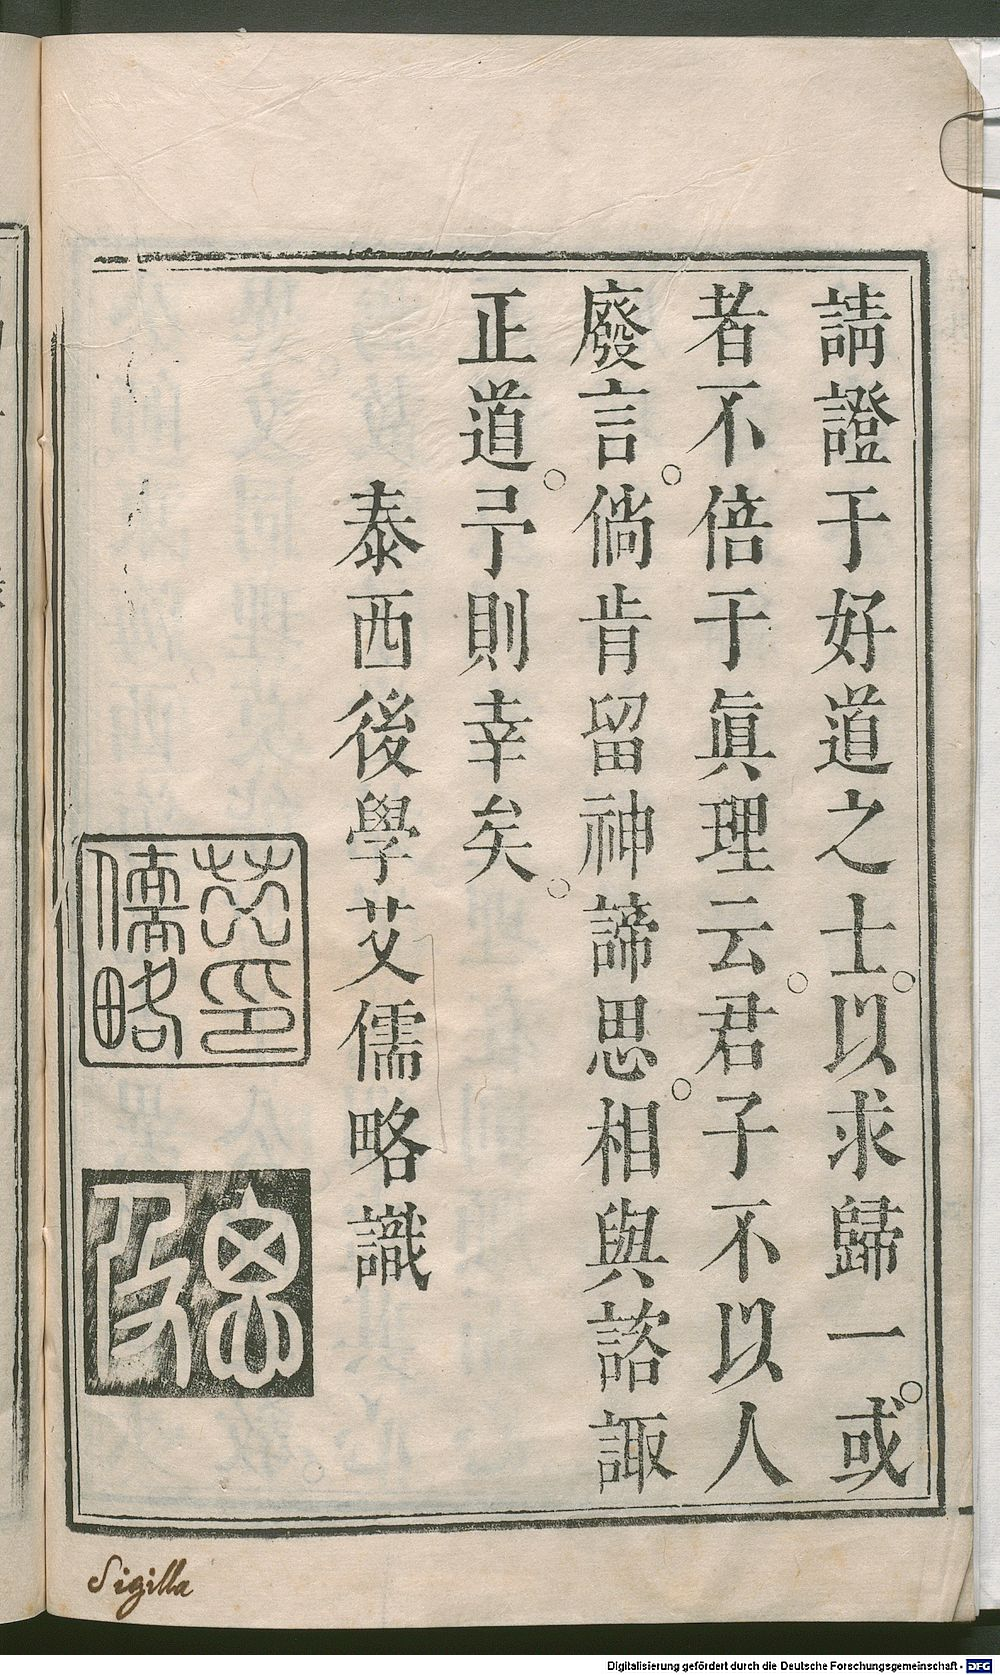 請證于好道之士。以求歸一。或
者不倍于眞理云。君子不以人
廢言。倘肯留神諦思。相與諮諏
正道。予則幸矣。
泰西後學艾儒略識
艾印
儒略
思及
Sigilla
Digitalisierung gefördert durch die Deutsche Forschungsgemeinschaft - DFG